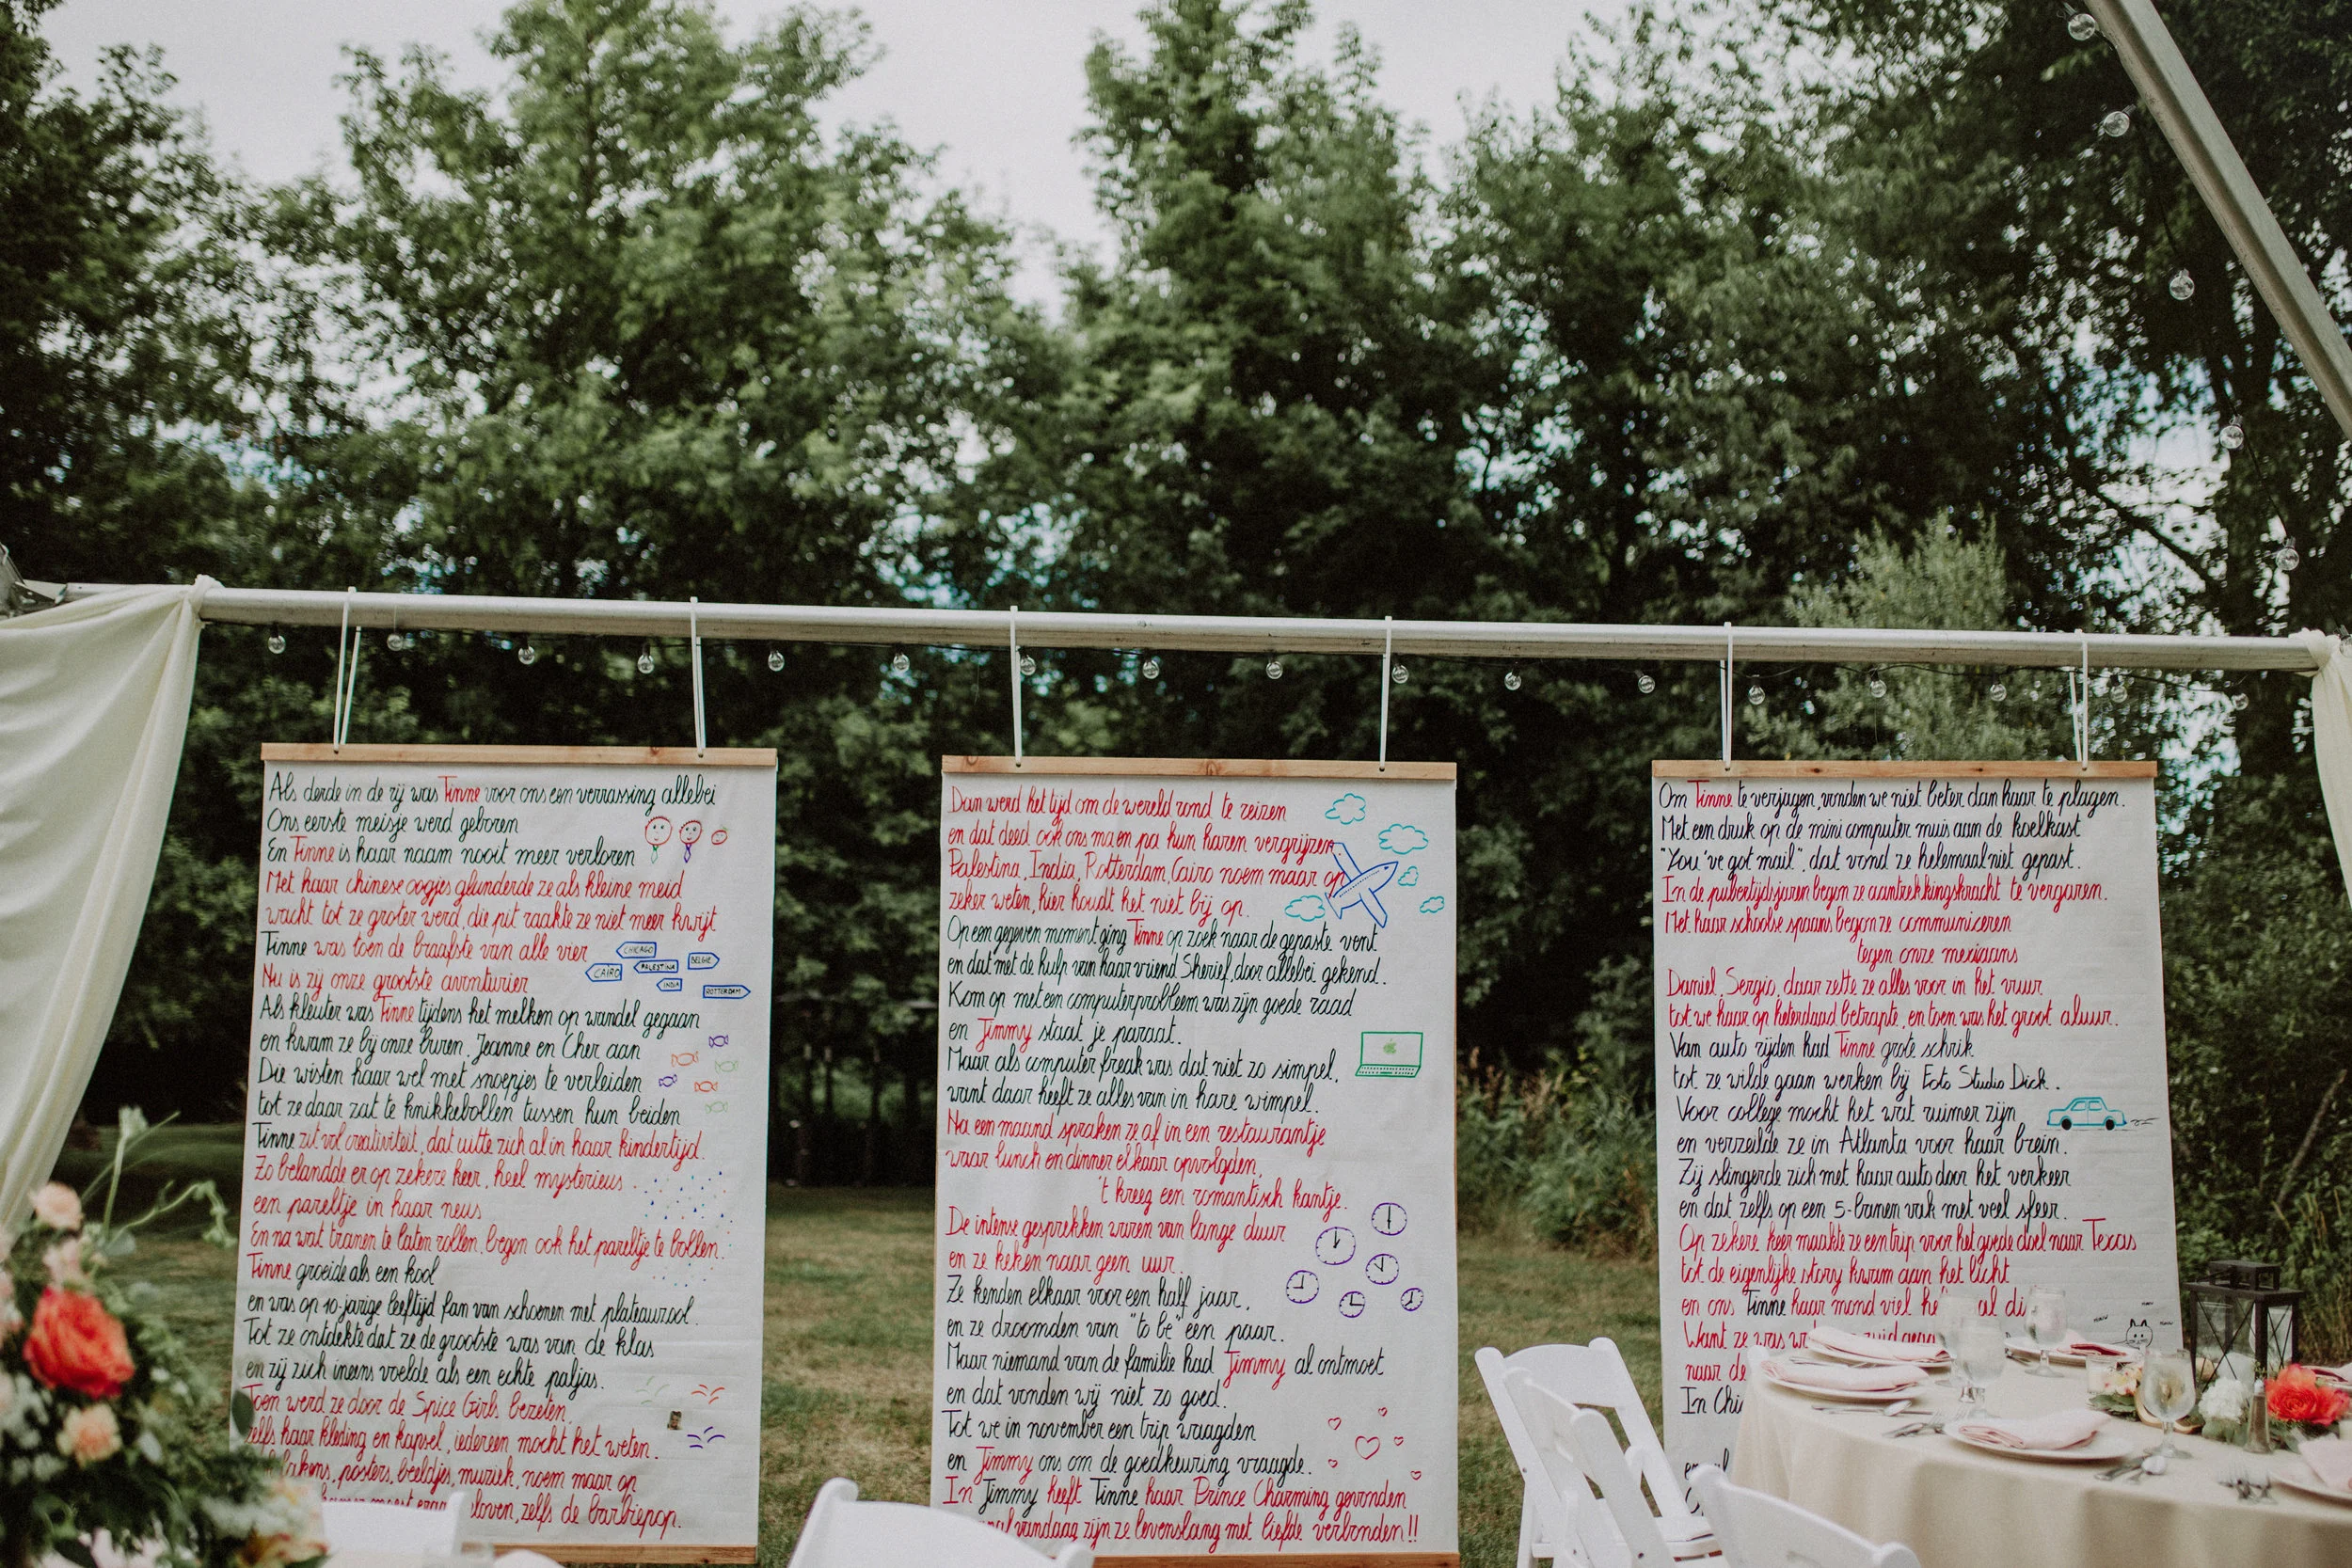 Als derde in de rij was Tinne voor ons een verrassing allebei
Ons eerste meisje werd geboren
En Tinne is haar naam nooit meer verloren
Met haar chinese oogjes glunderde ze als kleine meid
wacht tot ze groter werd, die pit raakte ze niet meer kwijt
Tinne was toen de braafste van alle vier
CHICAGO
CAIRO
PALESTINA
BELGIE
INDIA
ROTTERDAM
Nu is zij onze grootste avonturier
Als kleuter was Tinne tijdens het melken op wandel gegaan
en kwam ze bij onze buren, Jeanne en Cher aan
Die wisten haar wel met snoepjes te verleiden
tot ze daar zat te knikkebollen tussen hun beiden
Tinne zit vol creativiteit, dat uitte zich al in haar kindertijd.
Zo belandde er op zekere keer, heel mysterieus
een pareltje in haar neus
En na wat tranen te laten rollen, begon ook het pareltje te bollen.
Tinne groeide als een kool
en was op 10-jarige leeftijd fan van schoenen met plateauzool.
Tot ze ontdekte dat ze de grootste was van de klas
en zij zich ineens voelde als een echte paljas.
Toen werd ze door de Spice Girls bezeten,
zelfs haar kleding en kapsel, iedereen mocht het weten.
lakens, posters, beeldjes, muziek, noem maar op
moest eraan geloven, zelfs de barbiepop.
Dan werd het tijd om de wereld rond te reizen
en dat deed ook ons ma en pa hun haren vergrijzen
Palestina, India, Rotterdam, Cairo noem maar op
zeker weten, hier houdt het niet bij op.
Op een gegeven moment ging Tinne op zoek naar de gepaste vent
en dat met de hulp van haar vriend Sherief, door allebei gekend.
Kom op met een computerprobleem was zijn goede raad
en Jimmy staat je paraat.
Maar als computer freak was dat niet zo simpel,
want daar heeft ze alles van in hare wimpel.
Na een maand spraken ze af in een restaurantje
waar lunch en dinner elkaar opvolgden,
't kreeg een romantisch kantje.
De intense gesprekken waren van lange duur
en ze keken naar geen uur.
Ze kenden elkaar voor een half jaar,
en ze droomden van "to be" een paar.
Maar niemand van de familie had Jimmy al ontmoet
en dat vonden wij niet zo goed.
Tot we in november een trip waagden
en Jimmy ons om de goedkeuring vraagde.
In Jimmy heeft Tinne haar Prince Charming gevonden
vandaag zijn ze levenslang met liefde verbonden!!
Om Tinne te verjagen, vonden we niet beter dan haar te plagen.
Met een druk op de mini computer muis aan de koelkast
"You've got mail", dat vond ze helemaal niet gepast.
In de puberteitsjaren begon ze aantrekkingskracht te vergaren.
Met haar schoolse spaans begon ze communiceren
tegen onze mexicaans
Daniel, Sergio, daar zette ze alles voor in het vuur
tot we haar op heterdaad betrapte, en toen was het groot aluur.
Van auto rijden had Tinne grote schrik
tot ze wilde gaan werken bij Foto Studio Dick.
Voor college mocht het wat ruimer zijn
en verzeilde ze in Atlanta voor haar brein.
Zij slingerde zich met haar auto door het verkeer
en dat zelfs op een 5-banen vak met veel sfeer.
Op zekere keer maakte ze een trip voor het goede doel naar Texas
tot de eigenlijke story kwam aan het licht
en ons Tinne haar mond viel
Want ze was
naar de
In Chi